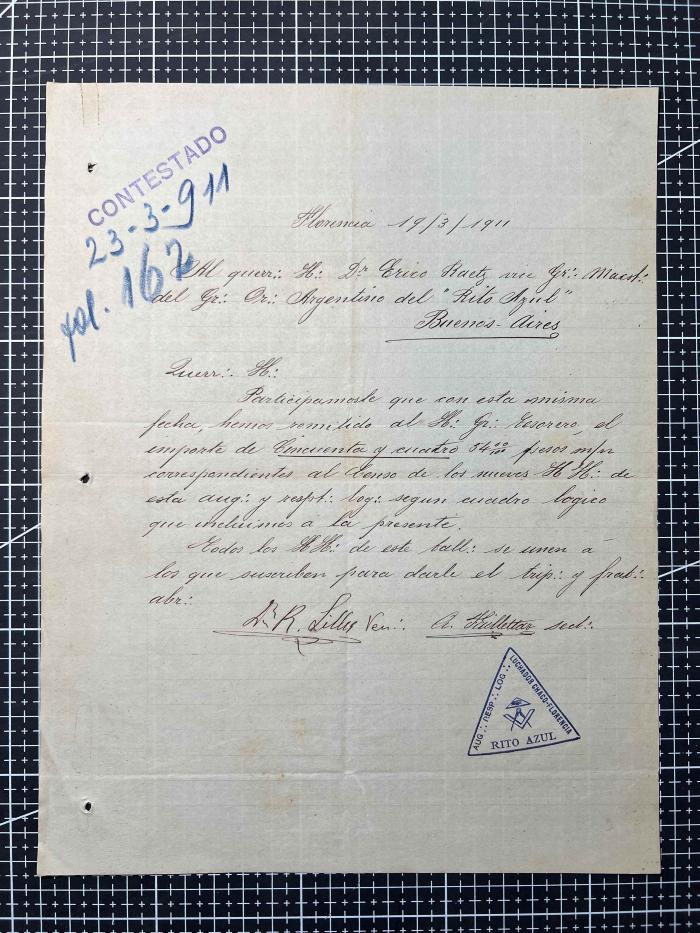 CONTESTADO
23-3-911
fol. 162
Florencia 19/3/1911
Al querr∴ H∴ Dr Erico Raetz vice Gr∴ Maest∴
del Gr∴ Or∴ Argentino del "Rito Azul"
Buenos-Aires
Querr∴ H∴
Participamosle que con esta misma
fecha, hemos remitido al H∴ Gr∴ Tesorero, el
importe de Cincuenta y cuatro 54 00/100 pesos m/n
correspondientes al Censo de los nueves HH∴ de
esta aug∴ y respt∴ log∴ segun cuadro logico
que incluimos a la presente.
Todos los HH∴ de este tall∴ se unen á
los que suscriben para darle el trip∴ y frat∴
abr∴
Dr R. Ven∴ A. sect∴
AUG∴ RESP∴ LOG∴
LUCHADOR CHACO-FLORENCIA
RITO AZUL